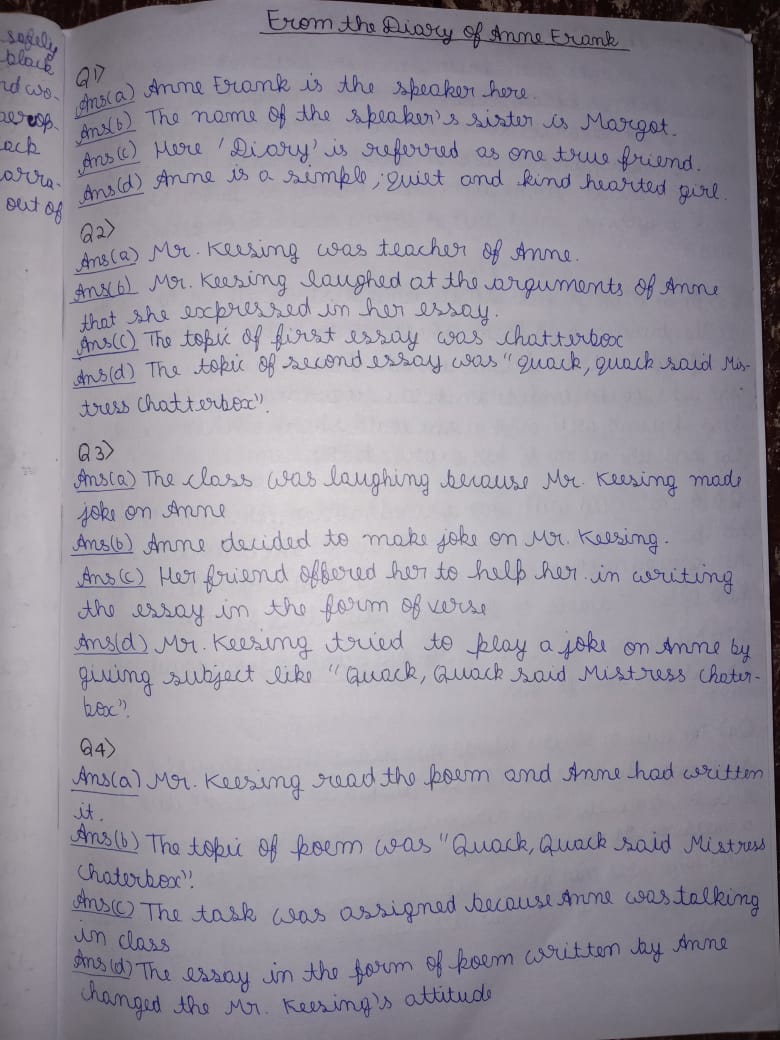 safely
black
nd wo-
aerop-
ack
arra-
out of
From the Diary of Anne Frank
Q1>
Ans(a) Anne Frank is the speaker here.
Ans(b) The name of the speaker's sister is Margot.
Ans(c) Here 'Diary' is referred as one true friend.
Ans(d) Anne is a simple, quiet and kind hearted girl.
Q2>
Ans(a) Mr. Keesing was teacher of Anne.
Ans(b) Mr. Keesing laughed at the arguments of Anne
that she expressed in her essay.
Ans(c) The topic of first essay was chatterbox
Ans(d) The topic of second essay was "quack, quack said Mis-
tress Chatterbox".
Q3>
Ans(a) The class was laughing because Mr. Keesing made
joke on Anne
Ans(b) Anne decided to make joke on Mr. Keesing.
Ans(c) Her friend offered her to help her in writing
the essay in the form of verse
Ans(d) Mr. Keesing tried to play a joke on Anne by
giving subject like "Quack, Quack said Mistress Chater-
box".
Q4>
Ans(a) Mr. Keesing read the poem and Anne had written
it.
Ans(b) The topic of poem was "Quack, Quack said Mistress
Chaterbox".
Ans(c) The task was assigned because Anne was talking
in class
Ans(d) The essay in the form of poem written by Anne
changed the Mr. Keesing's attitude